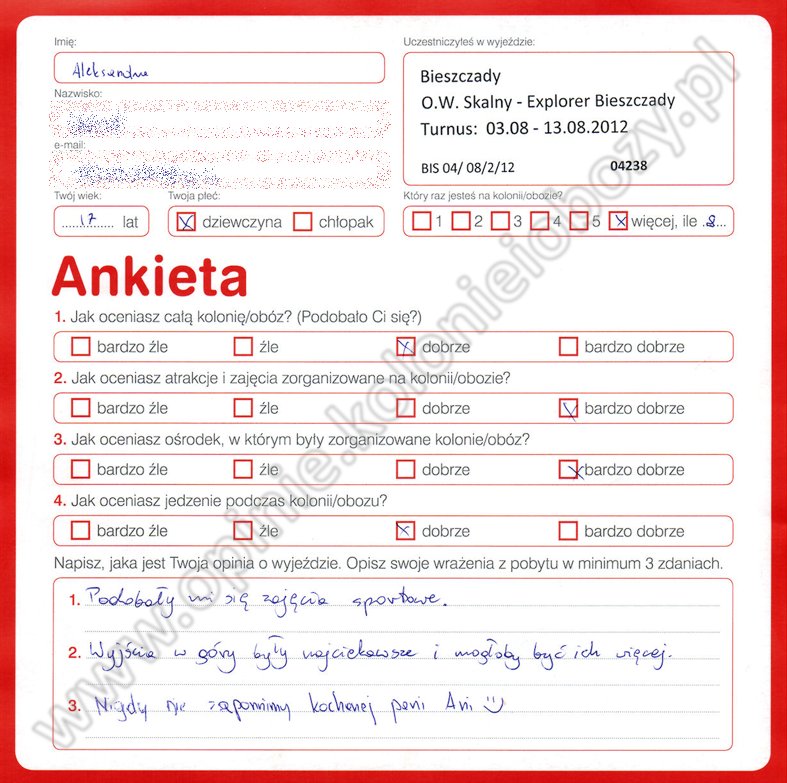 Imię:
Uczestniczyłeś w wyjeździe:
Aleksandra
Bieszczady
O.W. Skalny - Explorer Bieszczady
Turnus: 03.08 - 13.08.2012
BIS 04/ 08/2/12 04238
Nazwisko:
e-mail:
Twój wiek:
Twoja płeć:
Który raz jesteś na kolonii/obozie?
17 lat
dziewczyna chłopak
1 2 3 4 5 więcej, ile 8
Ankieta
1. Jak oceniasz całą kolonię/obóz? (Podobało Ci się?)
bardzo źle źle dobrze bardzo dobrze
2. Jak oceniasz atrakcje i zajęcia zorganizowane na kolonii/obozie?
bardzo źle źle dobrze bardzo dobrze
3. Jak oceniasz ośrodek, w którym były zorganizowane kolonie/obóz?
bardzo źle źle dobrze bardzo dobrze
4. Jak oceniasz jedzenie podczas kolonii/obozu?
bardzo źle źle dobrze bardzo dobrze
Napisz, jaka jest Twoja opinia o wyjeździe. Opisz swoje wrażenia z pobytu w minimum 3 zdaniach.
1. Podobały mi się zajęcia sportowe.
2. Wyjścia w góry były najciekawsze i mogłoby być ich więcej.
3. Nigdy nie zapomnimy kochanej pani Ani
www.opinie.kolonieiobozy.pl